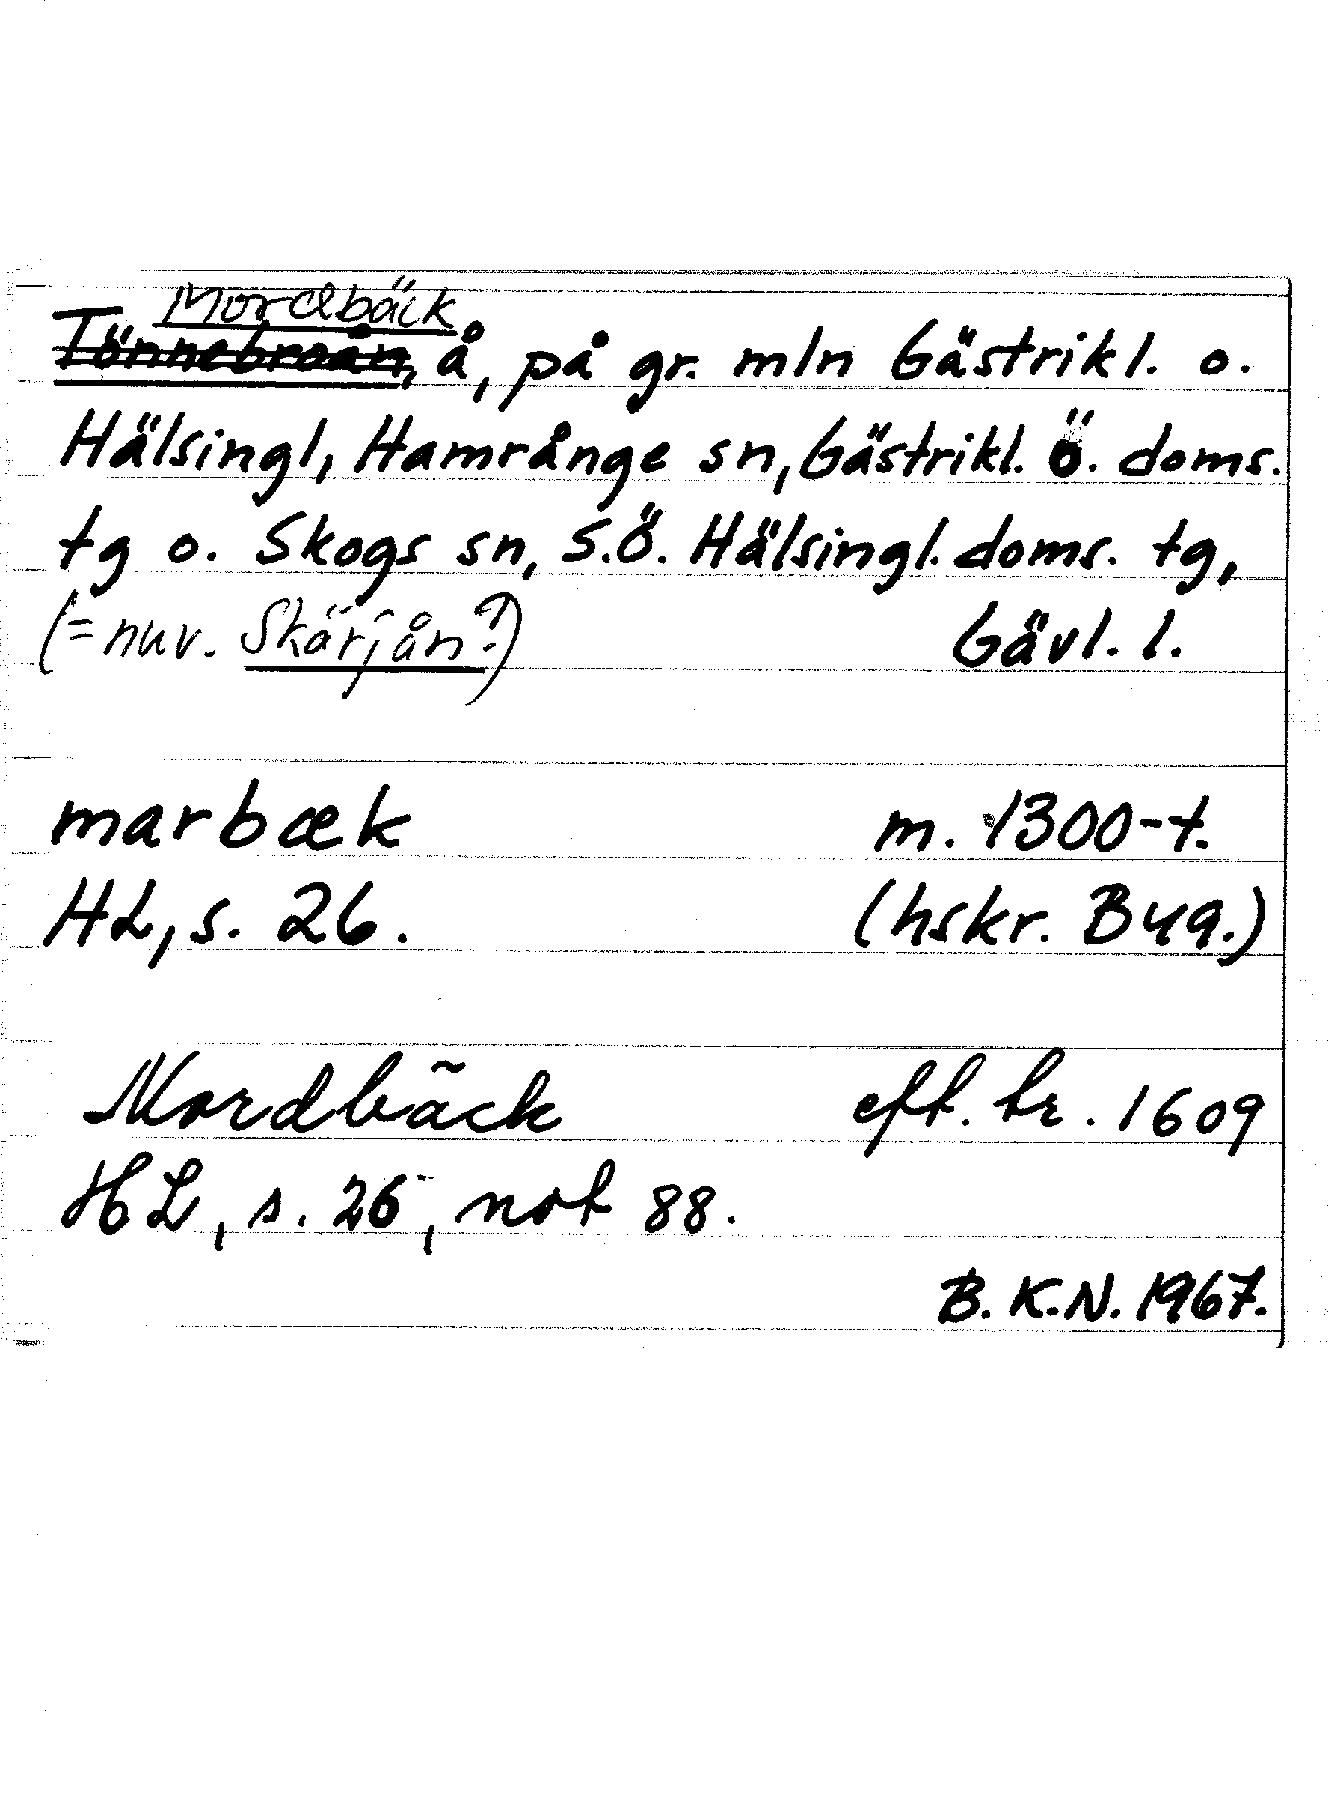 Mordbäck
Tönnebroån, å, på gr. mln Gästrikl. o.
Hälsingl, Hamrånge sn, Gästrikl. Ö. doms.
tg o. Skogs sn, S.Ö. Hälsingl. doms. tg,
(= nuv. Skärjån?) Gävl. l.
marbæk m. 1300-t.
HL, s. 26. (hskr. B 49.)
Mordbäck eft. tr. 1609
HL, s. 26, not 88.
B. K.N. 1967.